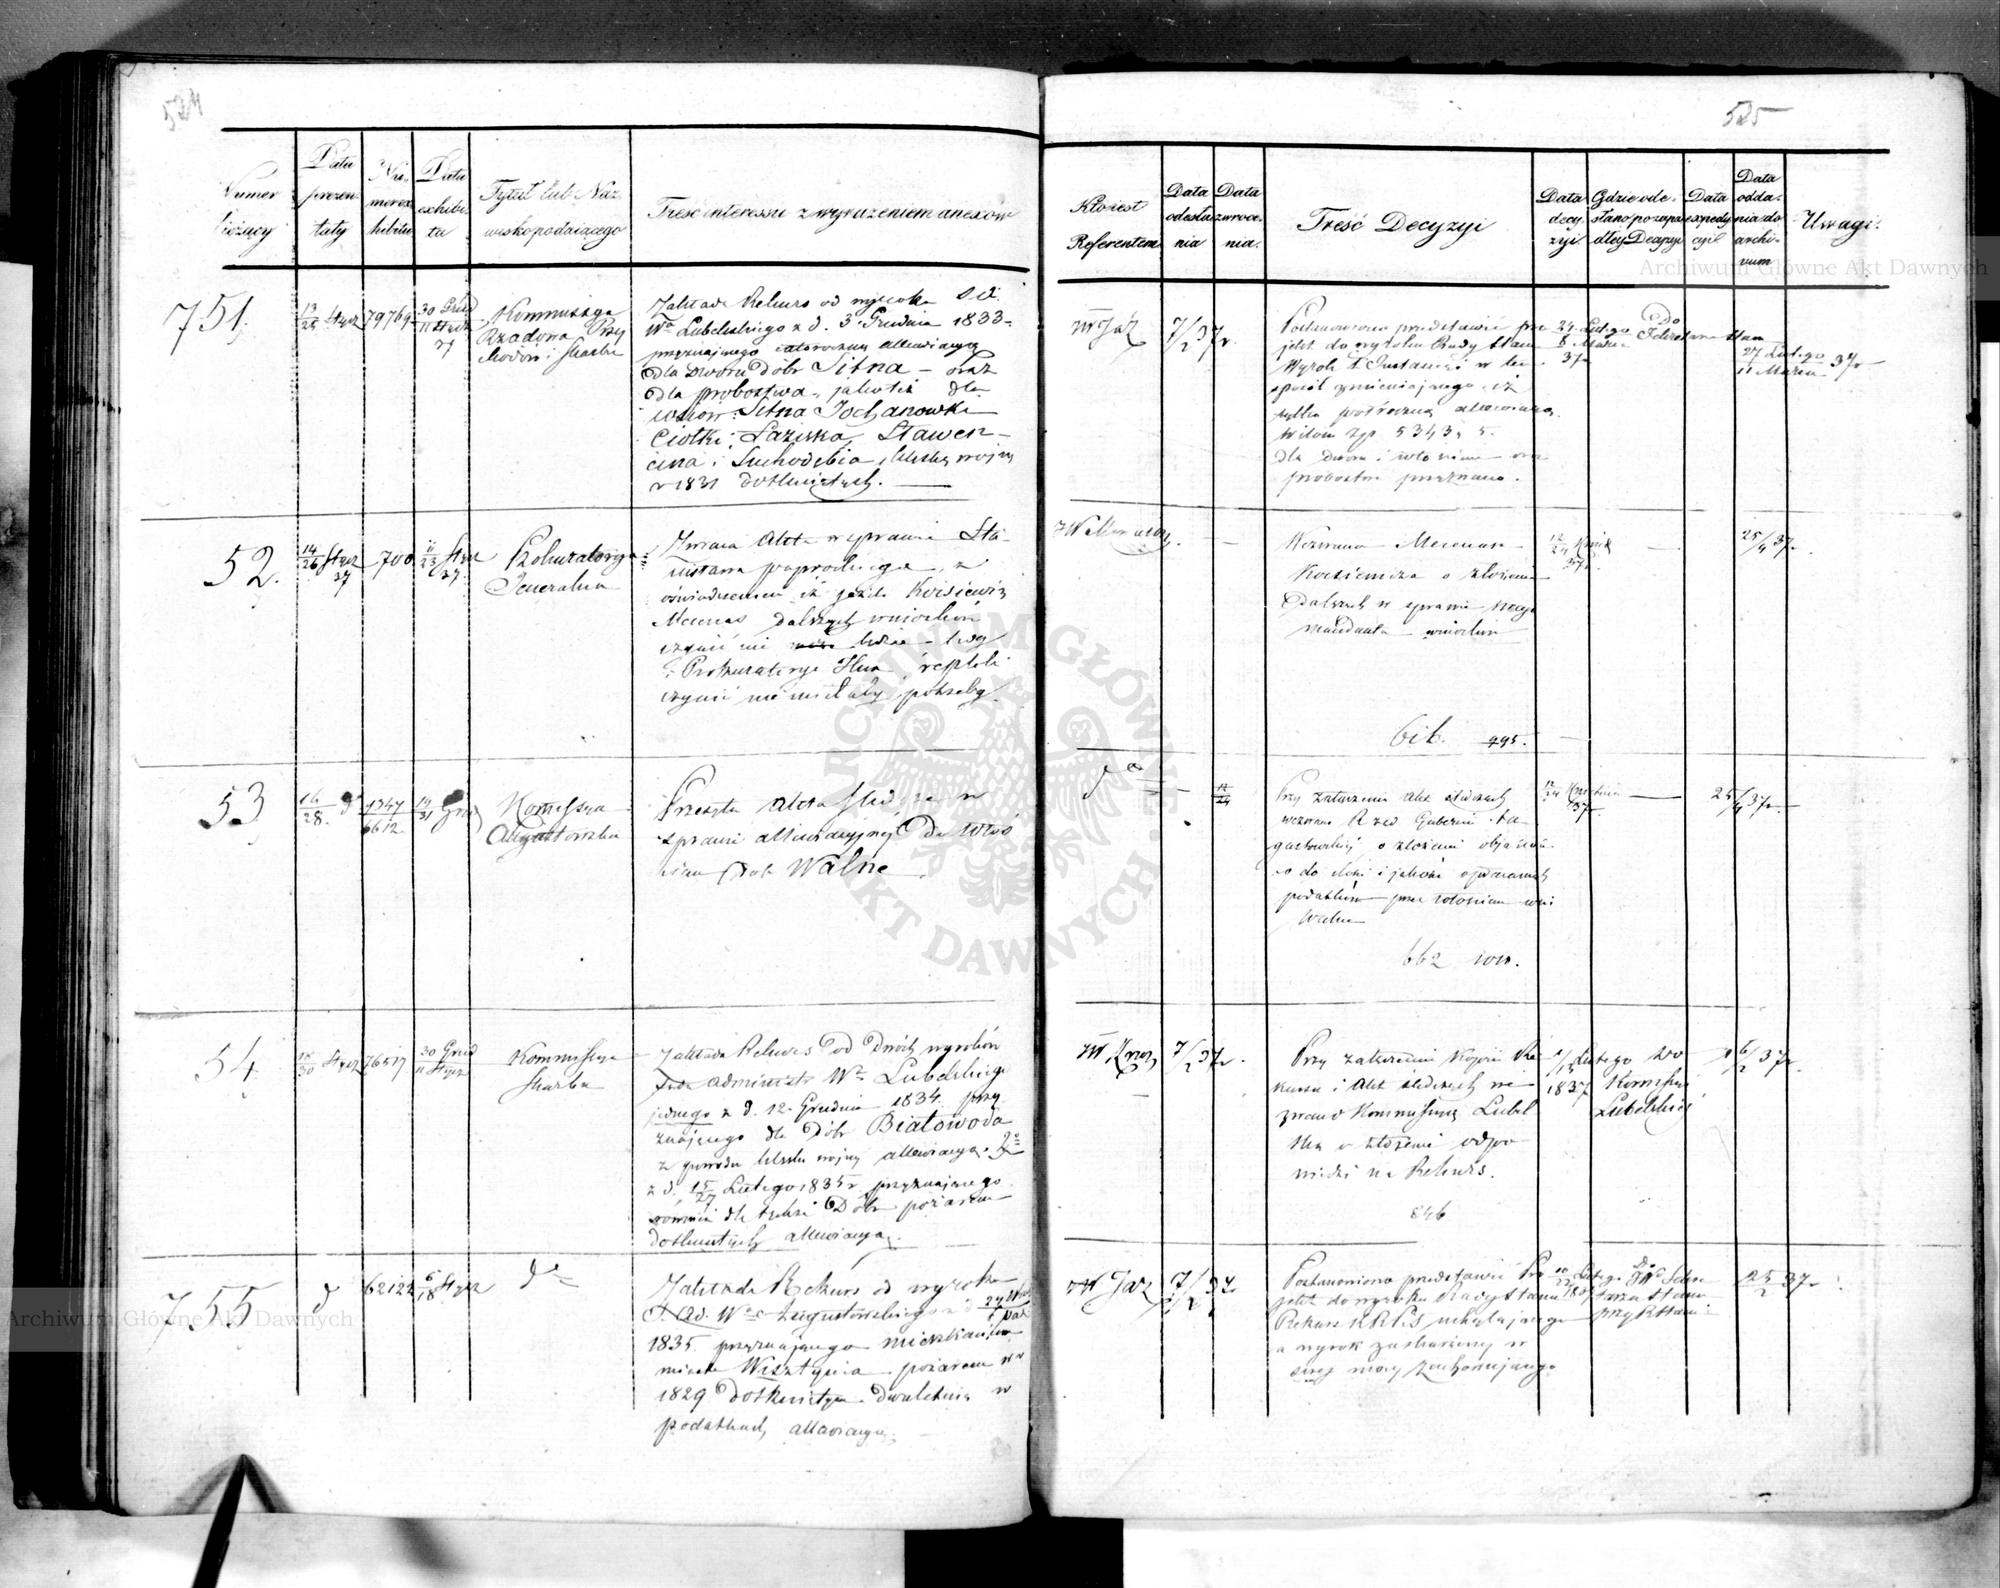 524
Numer bieżący
Data prezentaty
Numer exhibitu
Data exhibita
Tytuł lub Nazwisko podaiącego
Treść interessu z wyrażeniem anexów
751.
13/25 Stycz
79769
30 Grud
11 Stycz
37
Kommissya
Rządowa Przy
chodów i Skarbu
Zakłada Rekurs od wyroku
Wa Lubelskiego z d. 3 Grudnia 1833
przyznaiącego całoroczną allewiacyą
dla Dworu Dóbr Sitna – oraz
dla probostwa, jakoteż dla
włośc: Sitna Jochanowki
Ciotki, Łaziska, Stawen-
cina i Suchodębia, klęską wojny
w 1831 dotkniętych.
52.
14/26 Stycz
37
700
11/23 Stycz
37.
Prokuratorya
Jeneralna
Zwraca Akta w sprawie Sta-
oświadczeniem iż jeżeli
Mecenas dalszych wniosków
czynić nie będzie
Prokuratorya repliki
czynić nie miałaby potrzeby
53
16/28. d
1347
6612.
19/31 Grud
Komissya
Augustowska
Przesyła Akta śledcze w
sprawie allewiacyjnej Do włoś
cian Dóbr Walne
54
18/30 Stycz
76517
30 Grud
11 Stycz
Kommissya
Skarbu
Zakłada Rekurs od Dwóch wyroków
Administr Wa Lubelskiego
jednego z d. 12. Grudnia 1834 przy
znającego dla Dóbr Białowoda
z powodu klęsk wojny allewiacyą. 2o
z d. 15/27 Lutego 1835 r, przyznaiącego
również dla tychże Dóbr pożarem
dotkniętych allewiacyą.
7.55
d
62122
6/18 Stycz
do
Zakłada Rekurs od wyroku
S. Ad. Wa Augustowskiego z d
1835. przyznaiącego mieszkańcom
miasta Wisztyńca pożarem w r
1829 Dotkniętym Dwuletnią w
podatkach allewiacyą.
525
Kto iest Referentem
Data odesłania
Data zwrócenia.
Treść Decyzyi
Data decyzyi
Gdzie odesłano po zapadłey Decyzyi
Data expedycyi
Data oddania do archivum
Uwagi.
W Jaź
7/2 37r.
Postanowiono przedstawić Pro
jekt do wyroku Rady Stanu
Wyrok I Instancyi w ten
sposób zmieniającego, iż
tylko półroczną allewiacyą
w ilości złp 5343, 5.
dla dworu i włościan oraz
probostwa przyznano.
24 Lutego
8 Marca
37
Do
Sekretarza Stanu
27 Lutego
11 Marca 37r
Wezwano Mecenasa
o złożenie
Dalszych w sprawie swego
mandanta wniosków
12/24 Kwiet
37r
25/4 37r.
bib. 995.
do
12/24
Przy załączeniu Akt śledczych
wezwano Rząd Gubern. Au
gustowskiej o złożenie objaśnień
co do ilości i jakości opłacanych
podatków przez włościan wsi
Walne
12/24 Kwietnia
37r
25/4 37r.
662 1010.
W Krzoz
7/2 37r.
Przy załączeniu Kopii Re
kursu i Akt śledczych we
zwano Kommissyą Lubel
ską o złożenie odpo
wiedzi na Rekurs.
1/13 Lutego
1837
Do
Kommissyi
Lubelskiej
6/2 37r.
846
W Jaź
7/2 37.
Postanowiono przedstawić Pro
jekt do wyroku Rady Stanu
Rekurs KRPiS uchylającego
a wyrok zaskarżony w
swej mocy zachowującego
10/22 Lutego
Do JWo Sekre
tarza Stanu
przy RStanu
25/2 37r.
Archiwum Główne Akt Dawnych
Archiwum Główne Akt Dawnych
ARCHIWUM GŁÓWNE AKT DAWNYCH